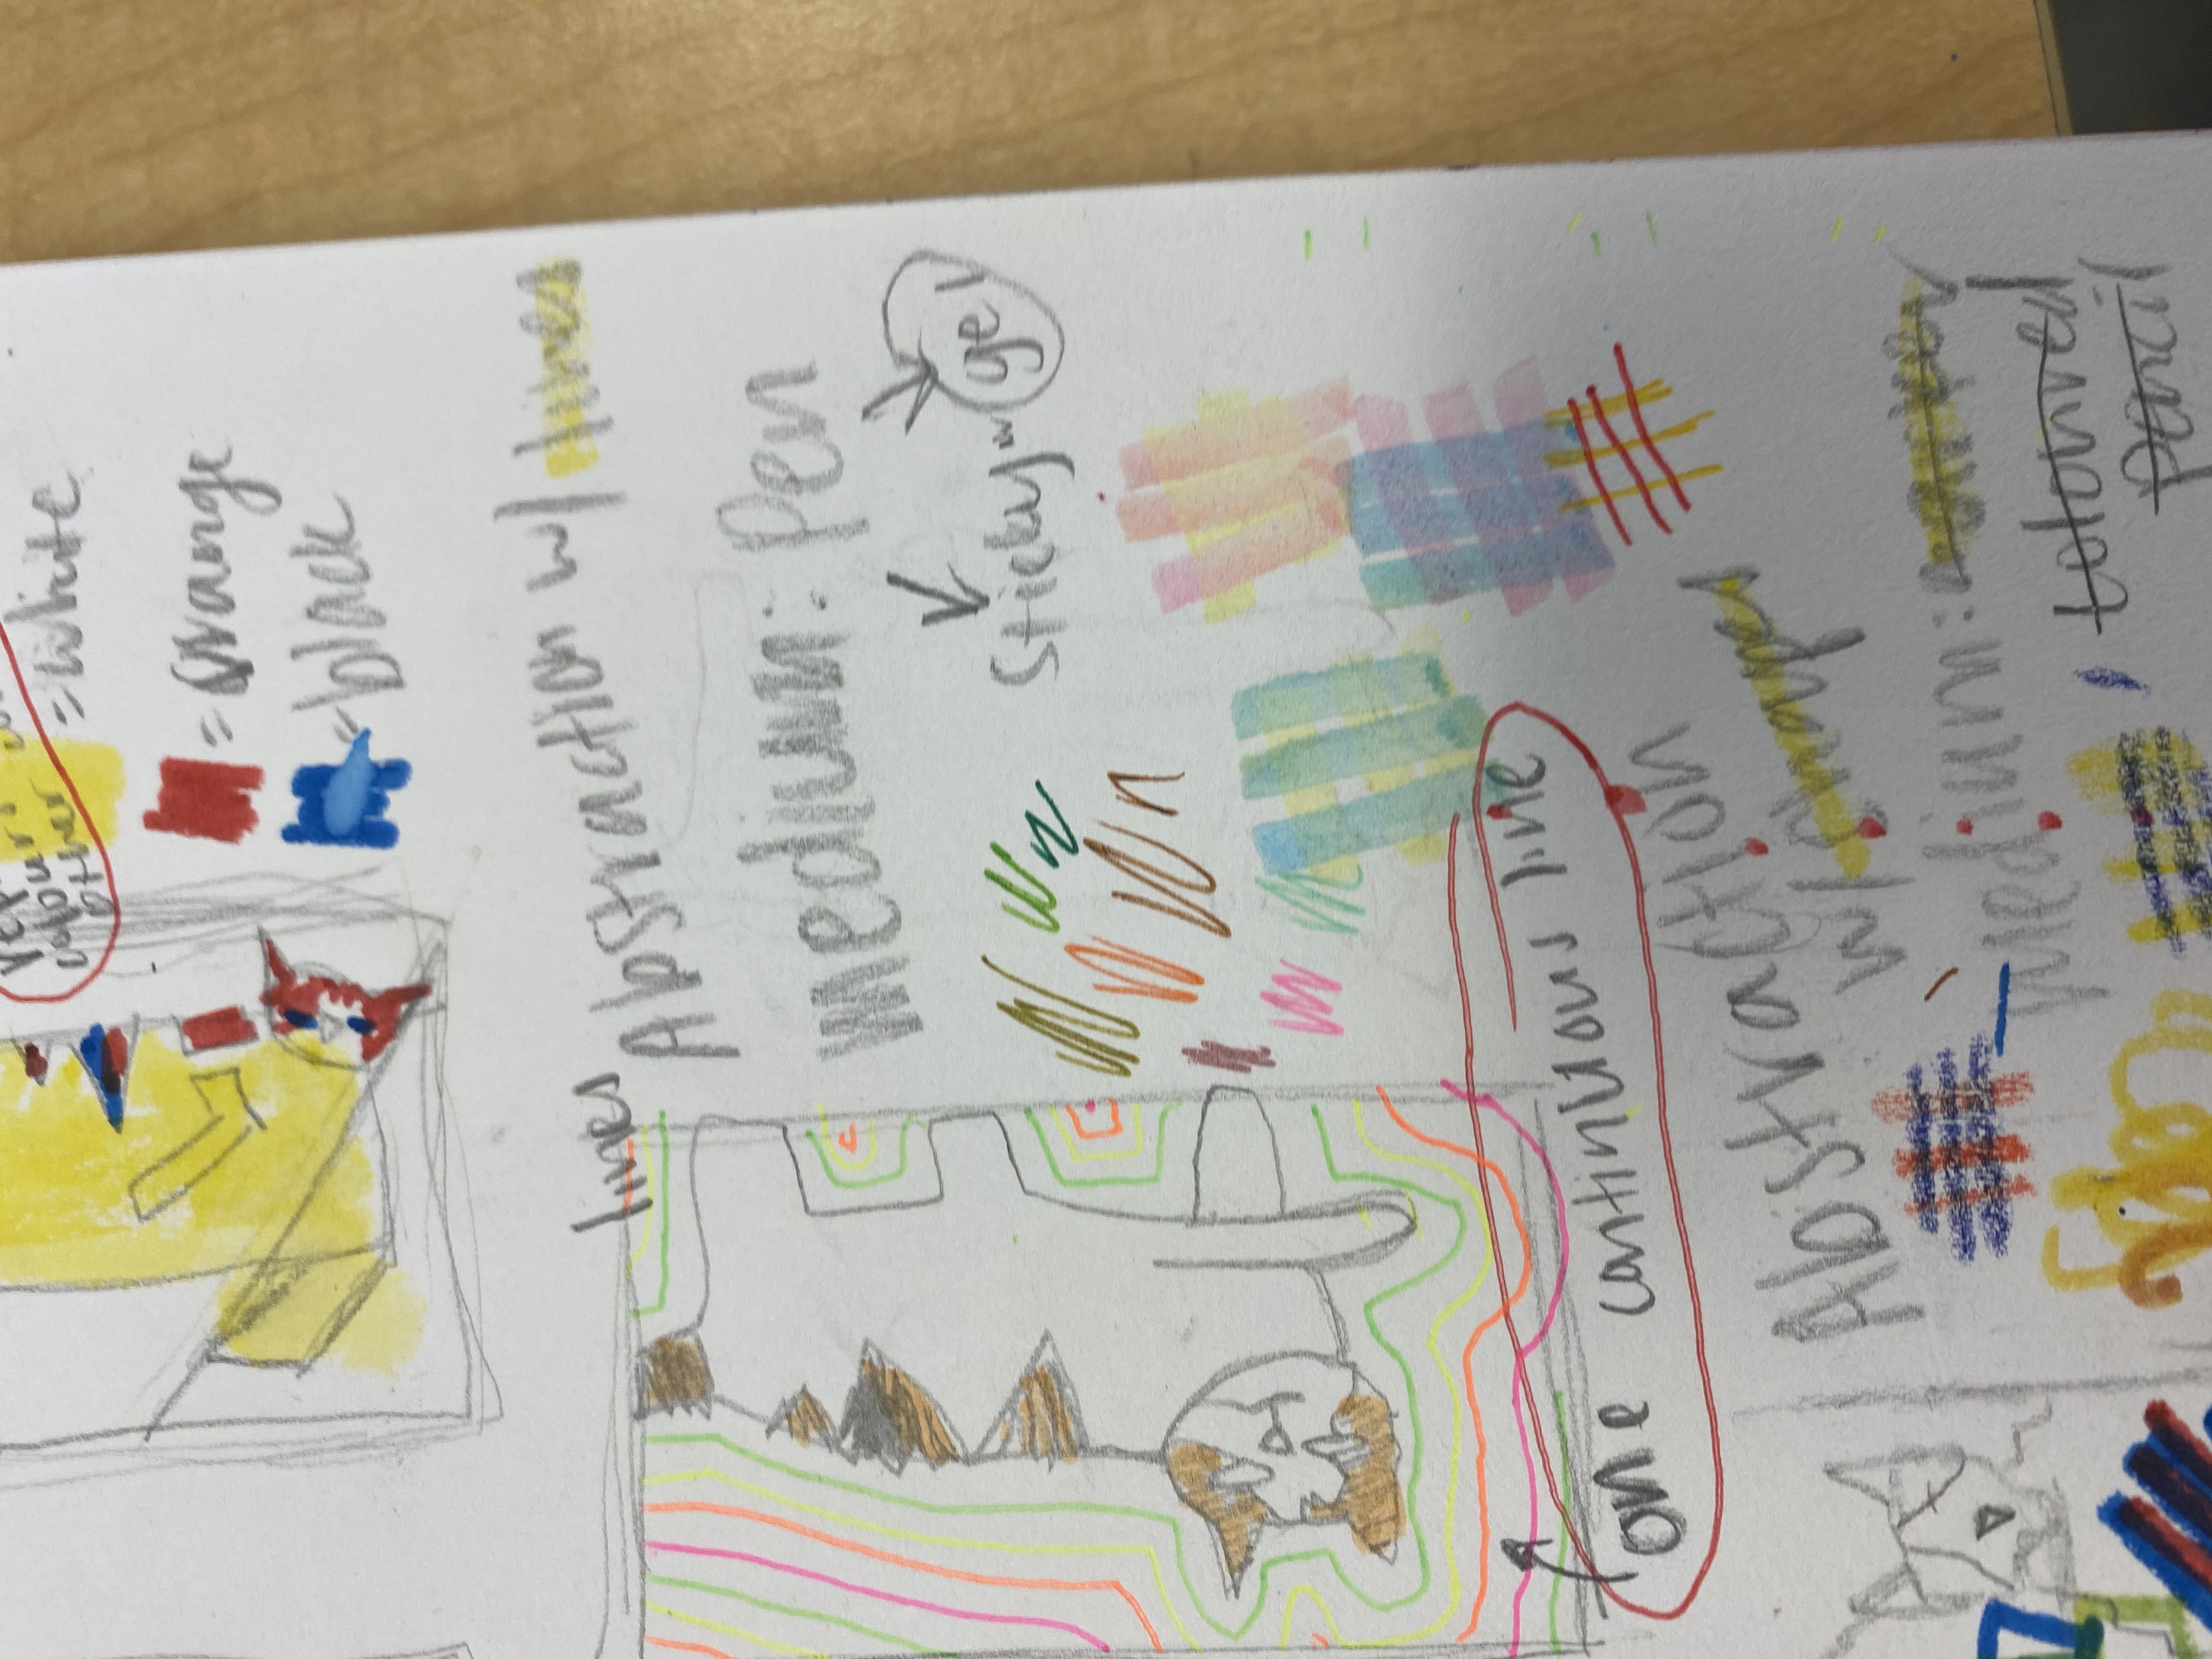 colour
other
= white
= Orange
= black
lines
Abstraction w/ lines
medium: Pen
Sticky or gel
one continuous line
Abstraction
w/ shapes
medium:
coloured
pencil